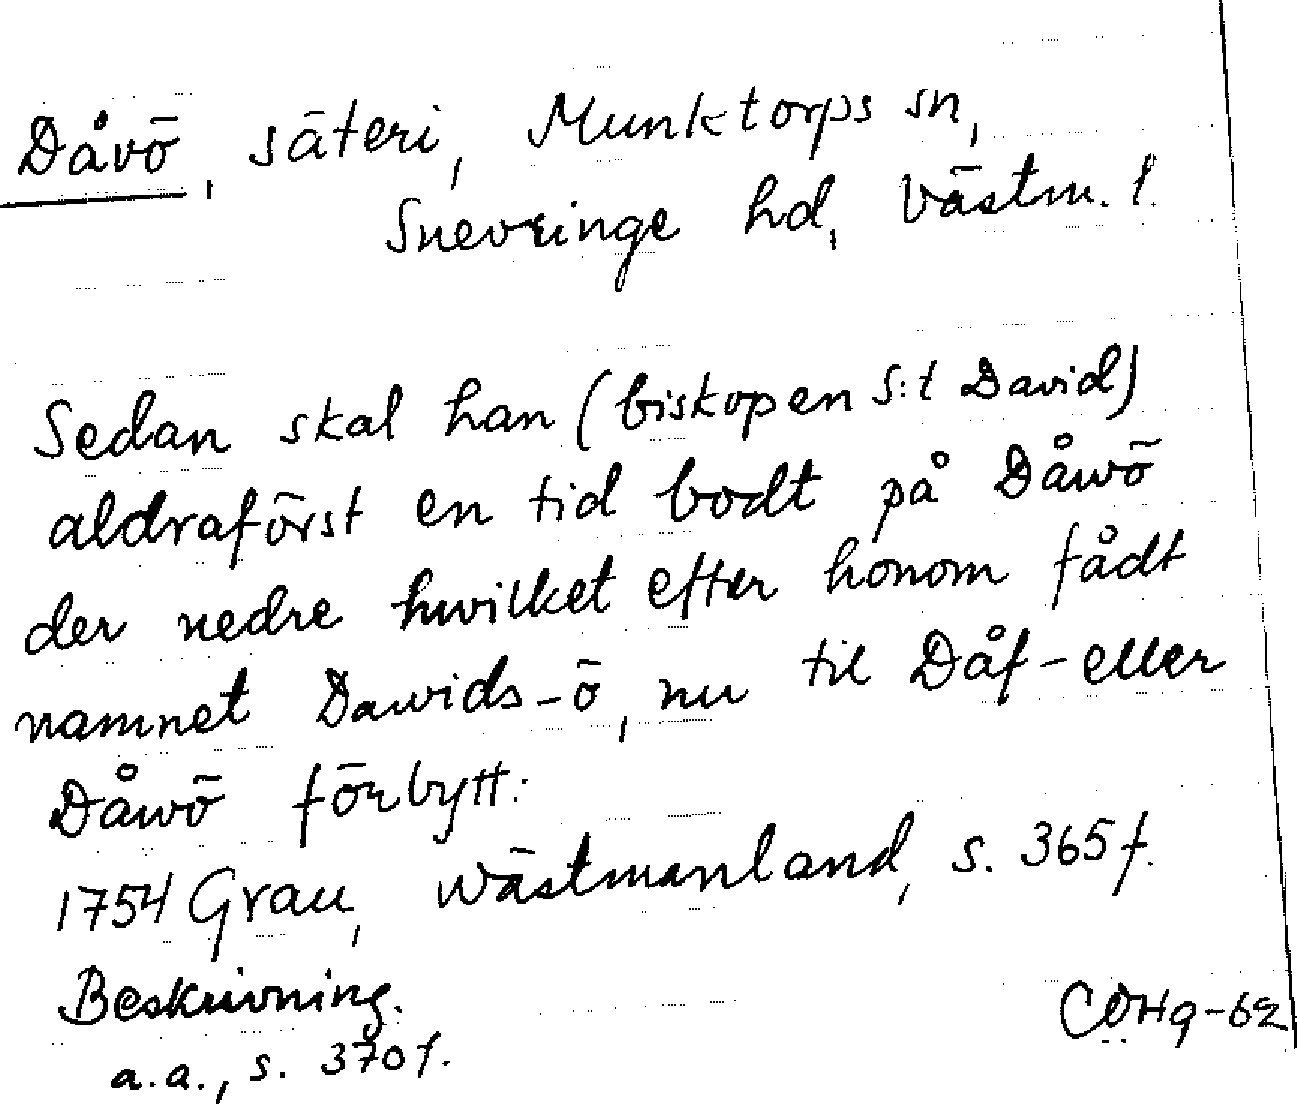 Dåvö, säteri, Munktorps sn,
Snevringe hd, Västm. l.
Sedan skal han (biskopen S:t David)
aldraförst en tid bodt på Dåwö
der nedre hwilket efter honom fådt
namnet Dawids-ö, nu til Dåf- eller
Dåwö förbytt.
1754 Grau, Wästmanland, s. 365 f.
Beskrivning.
a.a., s. 370 f.